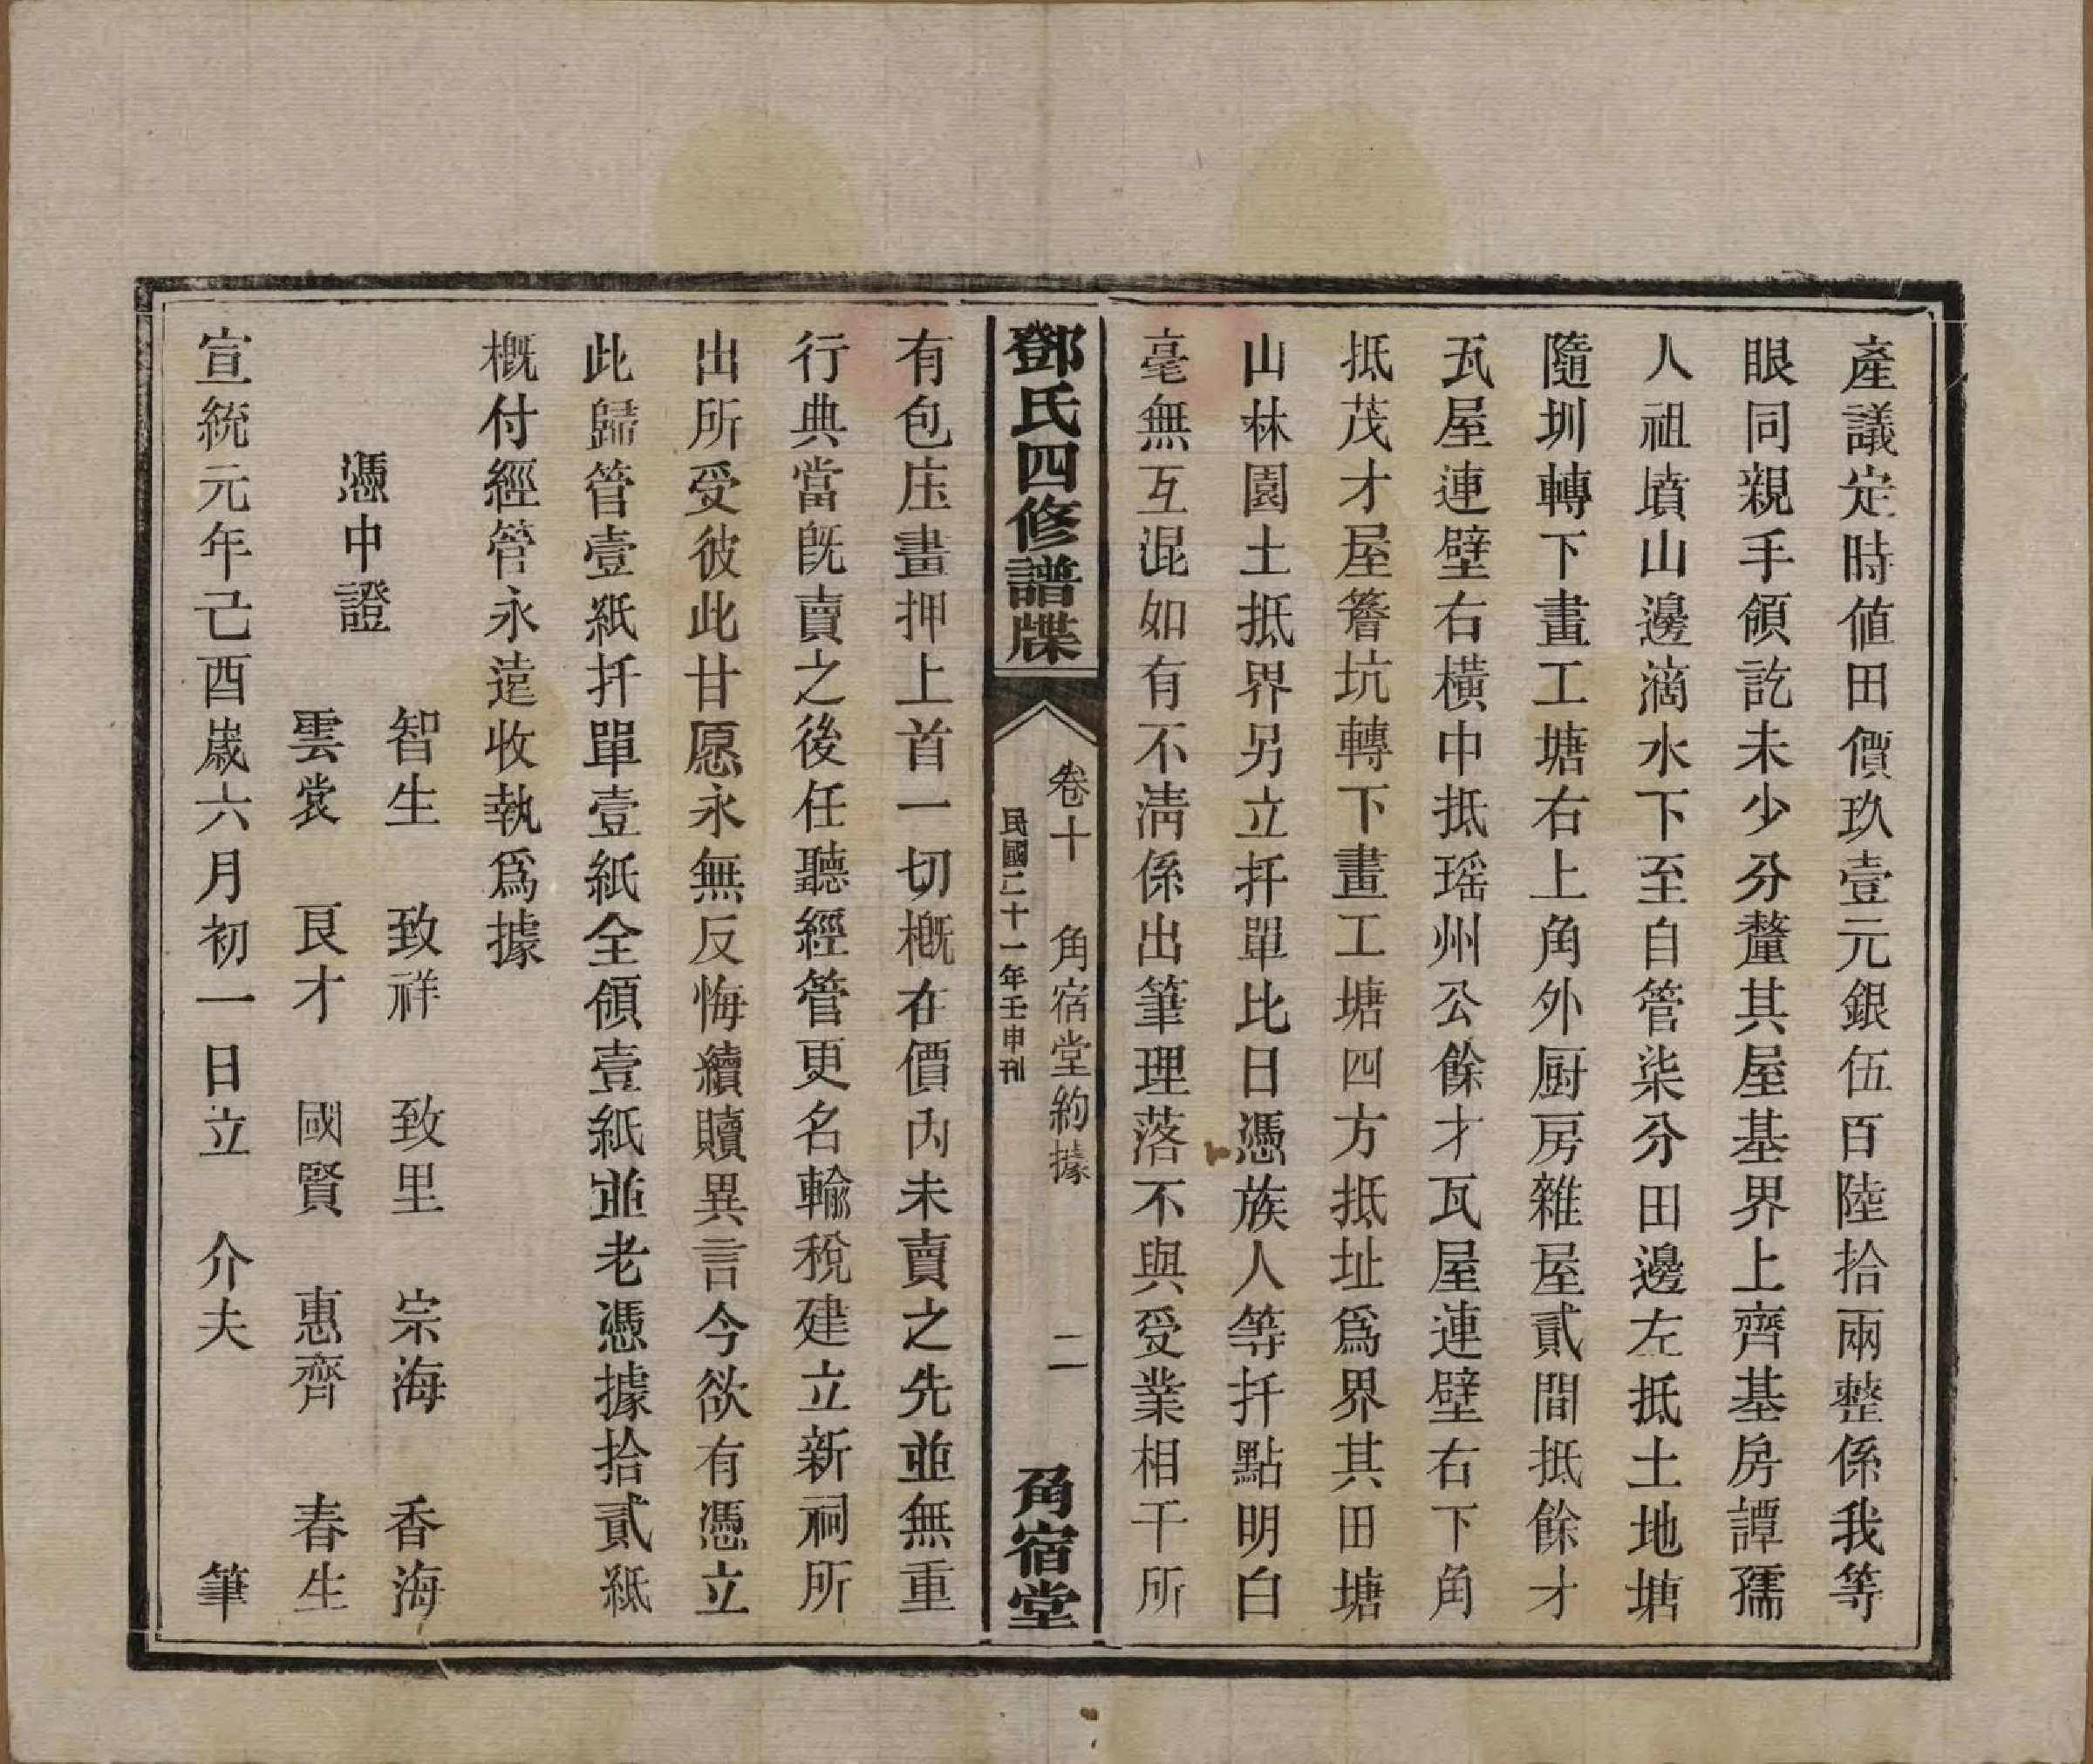 產議定時値田價玖壹元銀伍百陸拾兩整係我等
眼同親手領訖未少分釐其屋基界上齊基房譚孺
人祖墳山邊滴水下至自管柒分田邊左抵土地塘
隨圳轉下畫工塘右上角外厨房雜屋貳間抵餘才
瓦屋連壁右橫中抵瑶州公餘才瓦屋連壁右下角
抵茂才屋簷坑轉下畫工塘四方抵址爲界其田塘
山林園土抵界另立扦單比日憑族人等扦點明白
毫無互混如有不淸係出筆理落不與受業相干所
鄧氏四修譜牒
卷十 角宿堂約據 二
民國二十一年壬申刊
角宿堂
有包庄畫押上首一切概在價內未賣之先並無重
行典當旣賣之後任聽經管更名輸稅建立新祠所
出所受彼此甘愿永無反悔續贖異言今欲有憑立
此歸管壹紙扦單壹紙全領壹紙並老憑據拾貳紙
概付經管永遠收執爲據
憑中證
智生 致祥 致里 宗海 香海
雲裳 艮才 國賢 惠齊 春生
宣統元年己酉歲六月初一日立 介夫 筆